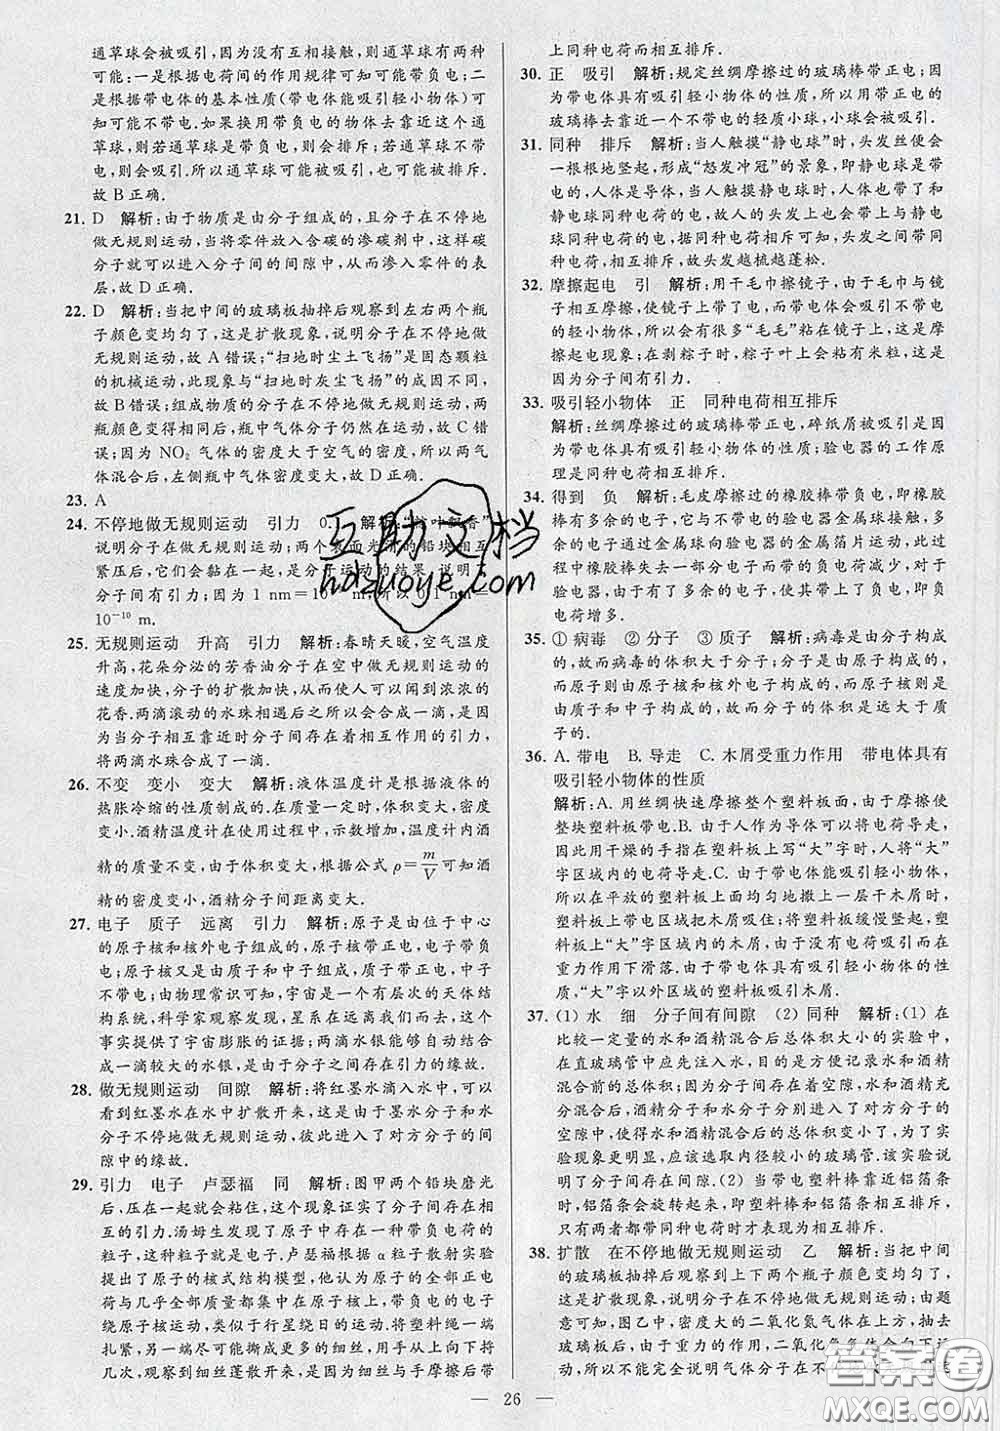 通草球会被吸引,因为没有互相接触,则通草球有两种
可能:一是根据电荷间的作用规律可知可能带负电;二
是根据带电体的基本性质(带电体能吸引轻小物体)可
知可能不带电.如果换用带负电的物体去靠近这个通
草球,则若通草球是带负电,则会排斥;若通草球不带
电,则会吸引.所以通草球可能被吸引,也可能被排斥.
故 B 正确.
21. D 解析:由于物质是由分子组成的,且分子在不停地
做无规则运动,当将零件放入含碳的渗碳剂中,这样碳
就会进入到分子间的间隙中,从而渐渐渗入零件的表
层,故 D 正确.
22. D 解析:当把中间的玻璃板抽掉后观察到左右两个瓶
子颜色变均匀了,这是扩散现象,说明分子在不停地做
无规则运动,故 A 错误;“扫地时尘土飞扬”是固态颗粒
的机械运动,此现象与“扫地时灰尘飞扬”的成因不同,
故 B 错误;组成物质的分子在不停地做无规则运动,两
瓶颜色变得相同后,瓶中气体分子仍然在运动,故 C 错
误;因为 NO₂ 气体的密度大于空气的密度,所以两瓶
气体混合后,左侧瓶中气体密度变大,故 D 正确.
23. A
24. 不停地做无规则运动 引力 0. 解析:“ 叶飘香”
说明分子在做无规则运动;两个表面光滑的铅块相互
紧压后,它们会黏在一起,是分子 运动的结果,说明了
分子间有引力;因为 1 nm=10 m,所以 0.1 nm=
10⁻¹⁰ m.
25. 无规则运动 升高 引力 解析:春晴天暖,空气温度
升高,花朵分泌的芳香油分子在空中做无规则运动的
速度加快,分子的扩散加快,人们可以闻到浓浓的
花香.两滴滚动的水珠相遇后之所以会合成一滴,是因
为当分子相互靠近时分子间存在着相互作用的引力,
将两滴水珠合成了一滴.
26. 不变 变小 变大 解析:液体温度计是根据液体的
热胀冷缩的性质制成的.在质量一定时,体积变大,密度
变小.酒精温度计在使用过程中,示数增加,温度计内酒
精的质量不变,由于体积变大,根据公式 ρ=m/V 可知酒
精的密度变小,酒精分子间距离变大.
27. 电子 质子 远离 引力 解析:原子是由位于中心
的原子核和核外电子组成的,原子核带正电,电子带负
电;原子核又是由质子和中子组成的,质子带正电,中子
不带电;由物理常识可知,宇宙是一个有层次的天体结
构系统,科学家观察发现,星系在远离我们而去,这个
事实提供了宇宙膨胀的证据;两滴水银能够自动结合
成一滴较大的水银,是由于分子之间存在引力的缘故.
28. 做无规则运动 间隙 解析:将红墨水滴入水中,可以
看到红墨水在水中扩散开来,这是由于墨水分子和水
分子不停地做无规则运动,彼此进入了对方分子的间
隙中的缘故.
29. 引力 电子 卢瑟福 同 解析:图甲两个铅块磨光
后,压在一起就会粘住,这个现象证实了分子间存在相
互的引力.汤姆生发现了原子中存在一种带负电荷的
粒子,这种粒子就是电子.卢瑟福根据 α 粒子散射实验
提出了原子的核式结构模型,他认为原子的全部正电
荷与几乎全部质量都集中在原子核上,带负电的电子
绕原子核运动,类似于行星绕日的运动.将塑料绳一端
扎紧,另一端尽可能撕成更多的细丝,用手从上向下捋
几次,观察到细丝蓬散开来,是因为细丝与手摩擦后带
上同种电荷而相互排斥.
30. 正 吸引 解析:规定丝绸摩擦过的玻璃棒带正电;因
为带电体具有吸引轻小物体的性质,所以用带正电的
玻璃棒去靠近一个不带电的轻质小球,小球会被吸引.
31. 同种 排斥 解析:当人触摸“静电球”时,头发丝便会
一根根地竖起,形成“怒发冲冠”的景象,即静电球是带
电的,人体是导体,当人触摸静电球时,人体也带了和
静电球同种电荷的电,故人的头发上也带了与人体和
静电球同种电荷的电,据同种电荷相互排斥可知,头发
带同种电荷,相互排斥.头发也是如此,头发之间带同
种电荷,相互排斥.故头发越梳越蓬松.
32. 摩擦起电 引 解析:用干毛巾擦镜子,由于毛巾与镜
子相互摩擦,使镜子带了电,而带电物体会吸引不带电
的轻小物体,所以会有很多“毛毛”粘在镜子上,这是摩
擦起电现象;在剥粽子时,粽子叶上会粘有米粒,这是
因为分子间有引力.
33. 吸引轻小物体 正 同种电荷相互排斥
解析:丝绸摩擦过的玻璃棒带正电,碎纸屑被吸引,是
因为带电体具有吸引轻小物体的性质;验电器的工作原
理是同种电荷相互排斥.
34. 得到 负 解析:毛皮摩擦过的橡胶棒带负电,即橡胶
棒有多余的电子,它与不带电的验电器金属球接触,
多余的电子通过金属球向验电器的金属箔片运动,此
过程中橡胶棒失去一部分电子而电荷减少,对于
验电器,由于有了多余的电子,使其带负电,并使负电
荷增多.
35. ①病毒 ②分子 ③质子 解析:病毒是由分子构成
的,故而病毒的体积大于分子;分子是由原子构成的,
而原子则由原子核和核外电子构成的,而原子核则是
由质子和中子构成的,故而分子的体积是远大于质子
的.
36. A. 带电 B. 导走 C. 木屑受重力作用 带电体具有
吸引轻小物体的性质
解析:A. 用丝绸快速摩擦整个塑料板面,由于摩擦能
使整块塑料板带电.B. 由于人作为导体可以将电荷导走,
因此用干燥的手指在塑料板上写“大”字时,人将“大”
字区域内的电荷导走.C. 由于带电体能吸引轻小物体,
所以在平放的塑料板上面均匀地撒上一层干木屑时,
塑料板上带电区域把木屑吸住;将塑料板缓慢竖起,塑
料板上“大”字区域内的木屑,由于没有电荷吸引而在
重力作用下滑落.由于带电体具有吸引轻小物体的性
质,“大”字以外区域的塑料板吸引木屑.
37. (1) 水 细 分子间有间隙 (2) 同种 解析:(1) 在
比较一定量的水和酒精混合后总体积大小的实验中,
在直玻璃管中应先注入水,目的是方便记录水和酒精
混合前的总体积;因为分子间存在着空隙,水和酒精充
分混合后,酒精分子和水分子分别进入了对方分子的
空隙中,使得水和酒精混合后的总体积变小了,为使实
验现象更明显,应该选取内径较小的玻璃管.该实验说
明分子间有间隙.(2) 当带电塑料棒靠近铝箔条
时,铝箔条会旋转起来,即塑料棒和铝箔条相互排斥,
只有两者都带同种电荷时才表现为相互排斥.
38. 扩散 在不停地做无规则运动 乙 解析:当把中间
的玻璃板抽掉后观察到上下两个瓶子颜色变均匀了,
这是扩散现象,说明分子在不停地做无规则运动;由题
意可知,图乙中,密度大的二氧化氮气体在上方,抽去
玻璃板后,由于重力的作用,二氧化氮气体会向下运
动,所以不能完全说明气体分子在不
26
互助文档
hdzuoye.com
答案圈
MXQE.COM